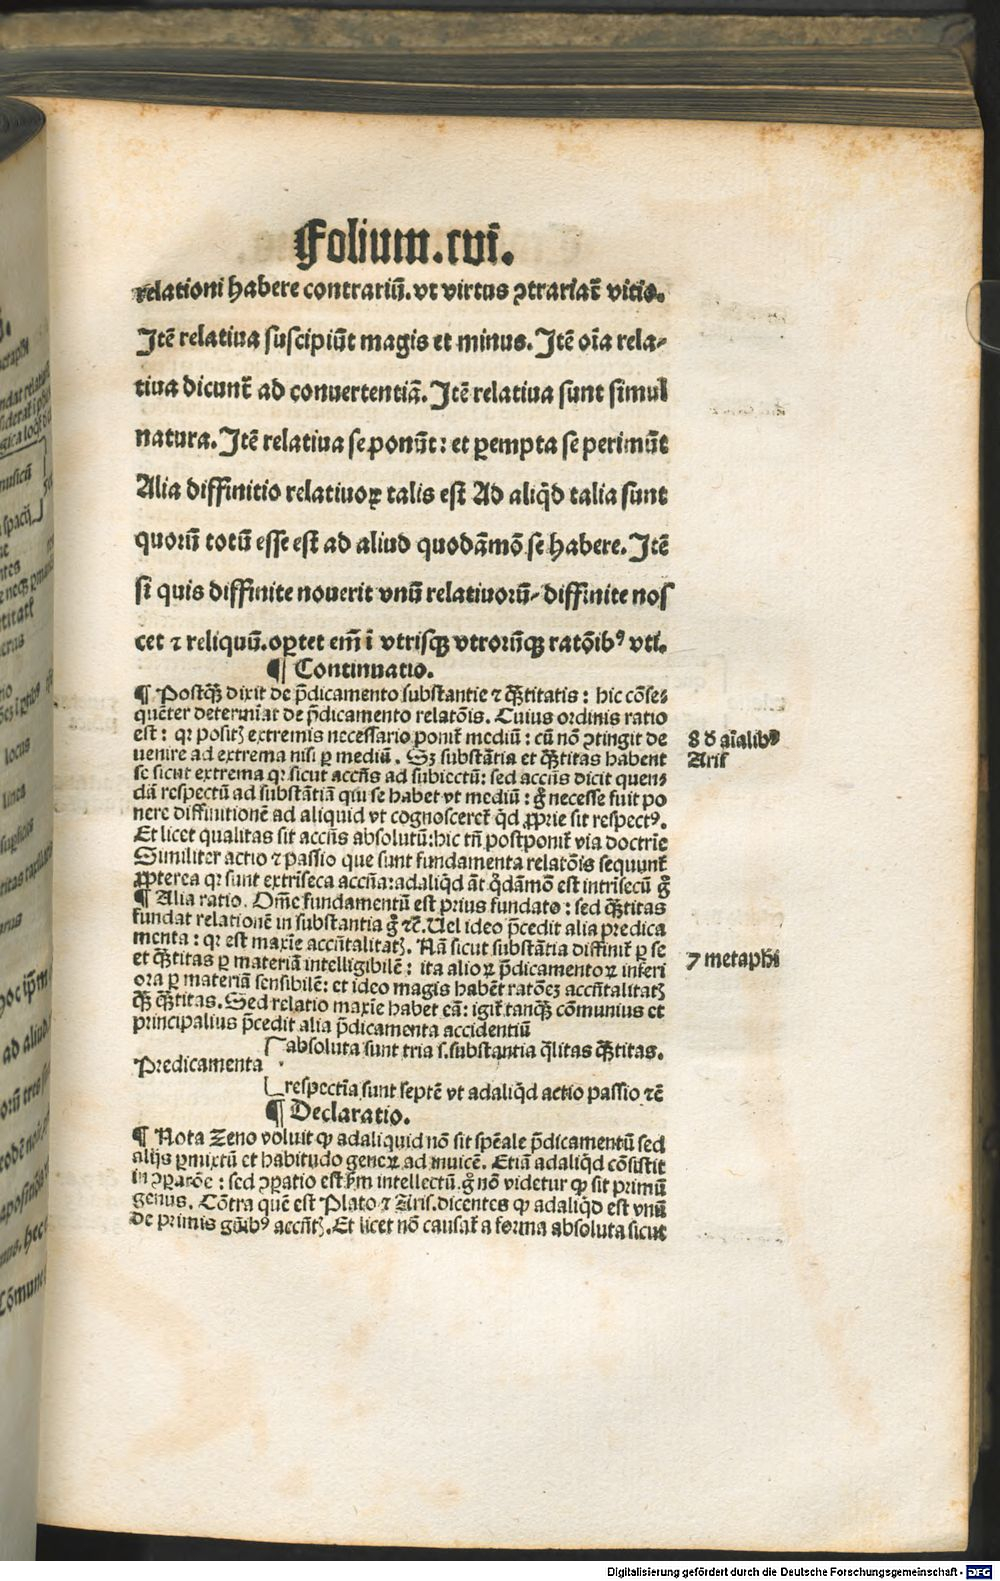 Folium.cvi.
relationi habere contrariū. vt virtus ꝯtrariat̄ vitio.
Itē relatiua suscipiūt magis et minus. Itē oīa rela-
tiua dicunt̄ ad conuertentiā. Itē relatiua sunt simul
natura. Itē relatiua se ponūt: et ꝑempta se perimūt
Alia diffinitio relatiuoꝝ talis est Ad aliq̄d talia sunt
quorū totū esse est ad aliud quodāmō se habere. Itē
si quis diffinite nouerit vnū relatiuorū, diffinite nos
cet ⁊ reliquū. oꝑtet em̄ ī vtrisqꝫ vtrorūqꝫ ratōibꝰ vti.
¶ Continuatio.
¶ Postqꝫ̄ dixit de p̄dicamento substantie ⁊ qꝫ̄titatis: hic cōse-
quēter determīat de p̄dicamento relatōis. Cuius ordinis ratio
est: qꝛ positꝭ extremis necessario ponit̄ mediū: cū nō ꝯtingit de
uenire ad extrema nisi ꝑ mediū. Sꝫ substātia et qꝫ̄titas habent
se sicut extrema qꝛ sicut accn̄s ad subiectū: sed accn̄s dicit quen-
dā respectū ad substātiā qui se habet vt mediū: gͦ necesse fuit po
nere diffinitionē ad aliquid vt cognosceret̄ q̄d ꝓprie sit respectꝰ.
Et licet qualitas sit accn̄s absolutū: hic tn̄ postponit̄ via doctrīe
Similiter actio ⁊ passio que sunt fundamenta relatōis sequunt̄
ꝓpterea qꝛ sunt extrīseca accn̄a: adaliq̄d āt q̄dāmō est intrīsecū gͦ
¶ Alia ratio. Om̄e fundamentū est prius fundato: sed qꝫ̄titas
fundat relationē in substantia gͦ ⁊c̄. Uel ideo p̄cedit alia predica
menta: qꝛ est maxīe accn̄talitatꝭ. Nā sicut substātia diffinit̄ ꝑ se
et qꝫ̄titas ꝑ materiā intelligibilē: ita alioꝝ p̄dicamentoꝝ inferi
ora ꝑ materiā sensibilē: et ideo magis habēt ratōeꝫ accn̄talitatꝭ
qꝫ̄ qꝫ̄titas. Sed relatio maxīe habet eā: igit̄ tanqꝫ̄ cōmunius et
principalius p̄cedit alia p̄dicamenta accidentiū
absoluta sunt tria s. substantia q̄litas qꝫ̄titas.
Predicamenta
respectīa sunt septē vt adaliq̄d actio passio ⁊c̄
¶ Declaratio.
¶ Nota Zeno voluit ꝙ adaliquid nō sit spēale p̄dicamentū sed
alijs ꝑmixtū et habitudo geneꝝ ad inuicē. Etiā adaliq̄d cōsistit
in ꝯꝑarōe: sed ꝯꝑatio est ẜm intellectū. gͦ nō videtur ꝙ sit primū
genus. Cōtra quē est Plato ⁊ Aris. dicentes ꝙ adaliq̄d est vnū
de primis gn̄ibꝰ accn̄tꝭ. Et licet nō causat̄ a forma absoluta sicut
8 d̄ aīalibꝰ
Arist̄
7 metaphi
Digitalisierung gefördert durch die Deutsche Forschungsgemeinschaft - DFG